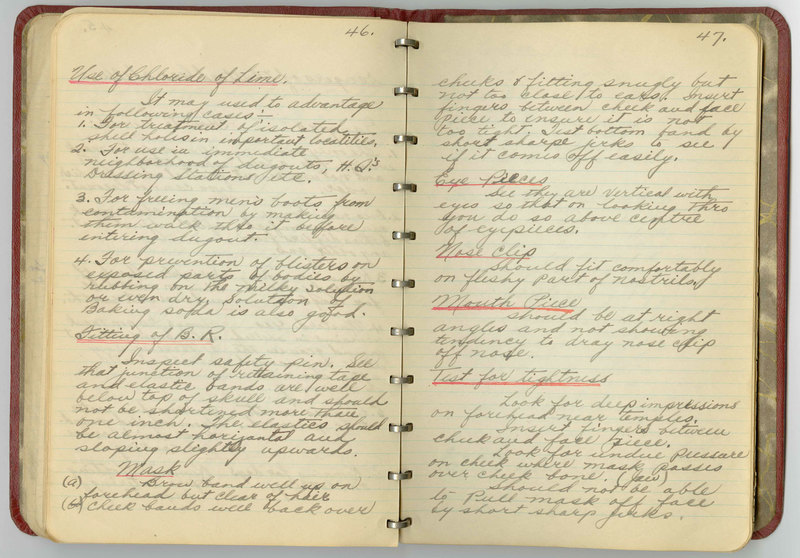 46.
Use of Chloride of Lime.
It may used to advantage
in following cases:-
1. For treatment of isolated
shell holes in important localities.
2. For use in immediate
neighborhood of dugouts, H.Q.s
Dressing Stations etc.
3. For freeing mens boots from
contamination by making
them walk thro it before
entering dugout.
4. For prevention of blisters on
exposed parts of bodies by
rubbing on the milky solution
or even dry. Solution of
Baking soda is also good.
Fitting of B.R.
Inspect safety pin. See
that junction of retaining tape
and elastic bands are well
below top of skull and should
not be shortened more than
one inch. The elastics should
be almost horizontal and
sloping slightly upwards.
Mask
(a) Brow band well up on
forehead but clear of hair
(b) Cheek bands well back over
47.
cheeks & fitting snugly but
not too close to ears. Insert
fingers between cheek and face
piece to insure it is not
too tight. Test bottom band by
short sharp jerks to see
if it comes off easily.
Eye Pieces
See they are vertical with
eyes so that on looking thro
you do so above centre
of eyepieces.
Nose Clip
Should fit comfortably
on fleshy part of nostrils.
Mouth Piece
should be at right
angles and not showing
tendency to drag nose clip
off nose.
Test for tightness
Look for deep impressions
on forehead near temples.
Insert fingers between
cheek and face piece.
Look for undue pressure
on cheek where mask passes
over cheek bone. (jaw)
Should not be able
to pull mask off face
by short sharp jerks.